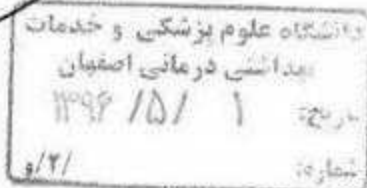 دانشگاه علوم پزشکی و خدمات
بهداشتی درمانی اصفهان
تاریخ: ۱ /۵/ ۱۳۹۶
شماره: /۲/و